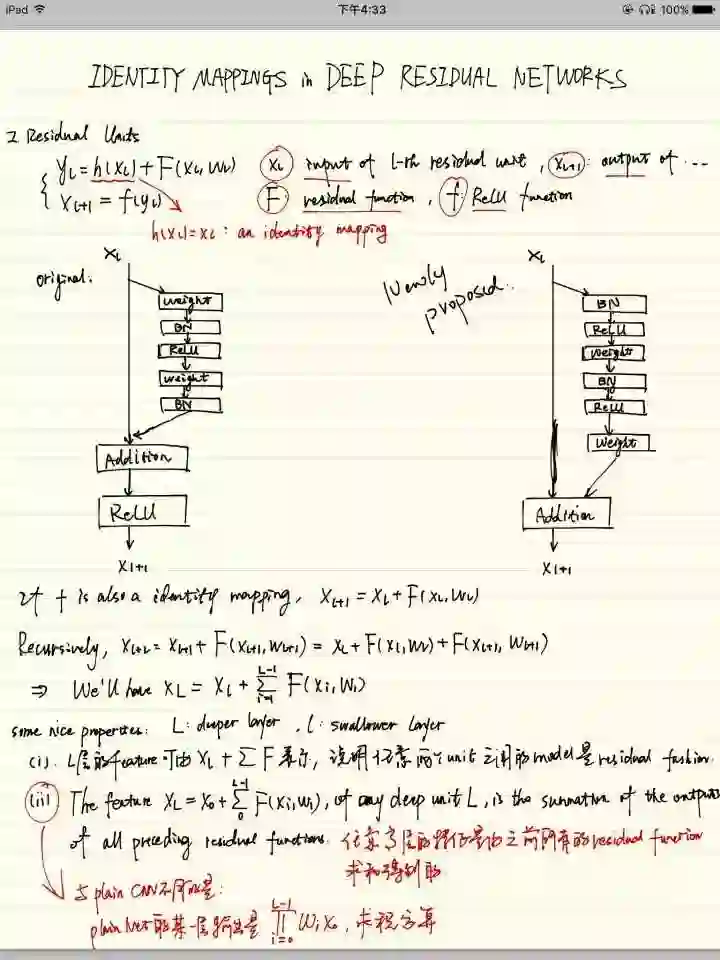 iPad 下午4:33 100%
IDENTITY MAPPINGS in DEEP RESIDUAL NETWORKS
2 Residual Units
yₗ = h(xₗ) + F(xₗ, wₗ) xₗ input of l-th residual unit, xₗ₊₁: output of ...
xₗ₊₁ = f(yₗ) F residual function, f: ReLU function
h(xₗ)=xₗ: an identity mapping
original: Newly proposed:
xₗ
weight
BN
ReLU
weight
BN
Addition
ReLU
xₗ₊₁
xₗ
BN
ReLU
weight
BN
ReLU
weight
Addition
xₗ₊₁
If f is also a identity mapping, xₗ₊₁ = xₗ + F(xₗ, wₗ)
Recursively, xₗ₊₂ = xₗ₊₁ + F(xₗ₊₁, wₗ₊₁) = xₗ + F(xₗ, wₗ) + F(xₗ₊₁, wₗ₊₁)
⇒ We'll have x_L = xₗ + Σ_{i=l}^{L-1} F(xᵢ, wᵢ)
some nice properties: L: deeper layer, l: swallower layer
(i). L层的feature可由 xₗ + Σ F 表示, 说明任意两个unit之间的model是residual fashion.
(ii) The feature x_L = x₀ + Σ_{0}^{L-1} F(xᵢ, wᵢ), of any deep unit L, is the summation of the outputs
of all preceding residual functions. 任意高层的特征是由之前所有的residual function
求和得到的
与plain CNN不同的是:
plain Net的某一层输出是 ∏_{i=0}^{L-1} wᵢx₀, 求积运算